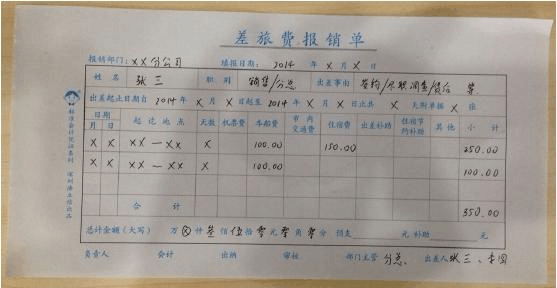 差旅费报销单
报销部门：XX分公司 填报日期：2014 年 X 月 X 日
姓名 张三 职别 销售/分总 出差事由 签约/尽职调查/贷后 等
出差起止日期自 2014 年 X 月 X 日起至 2014 年 X 月 X 日止共 X 天附单据 X 张
日期 起讫地点 天数 机票费 车船费 市内交通费 住宿费 出差补助 住宿节约补助 其他 小计
月 日
X X XX—XX X 100.00 150.00 250.00
X X XX—XX X 100.00 100.00
合计 350.00
总计金额（大写） 万 ⊗ 仟 叁 佰 伍 拾 零 元 零 角 零 分 预支 元 补助 元
负责人 会计 出纳 审核 部门主管 分总 出差人 张三、李四